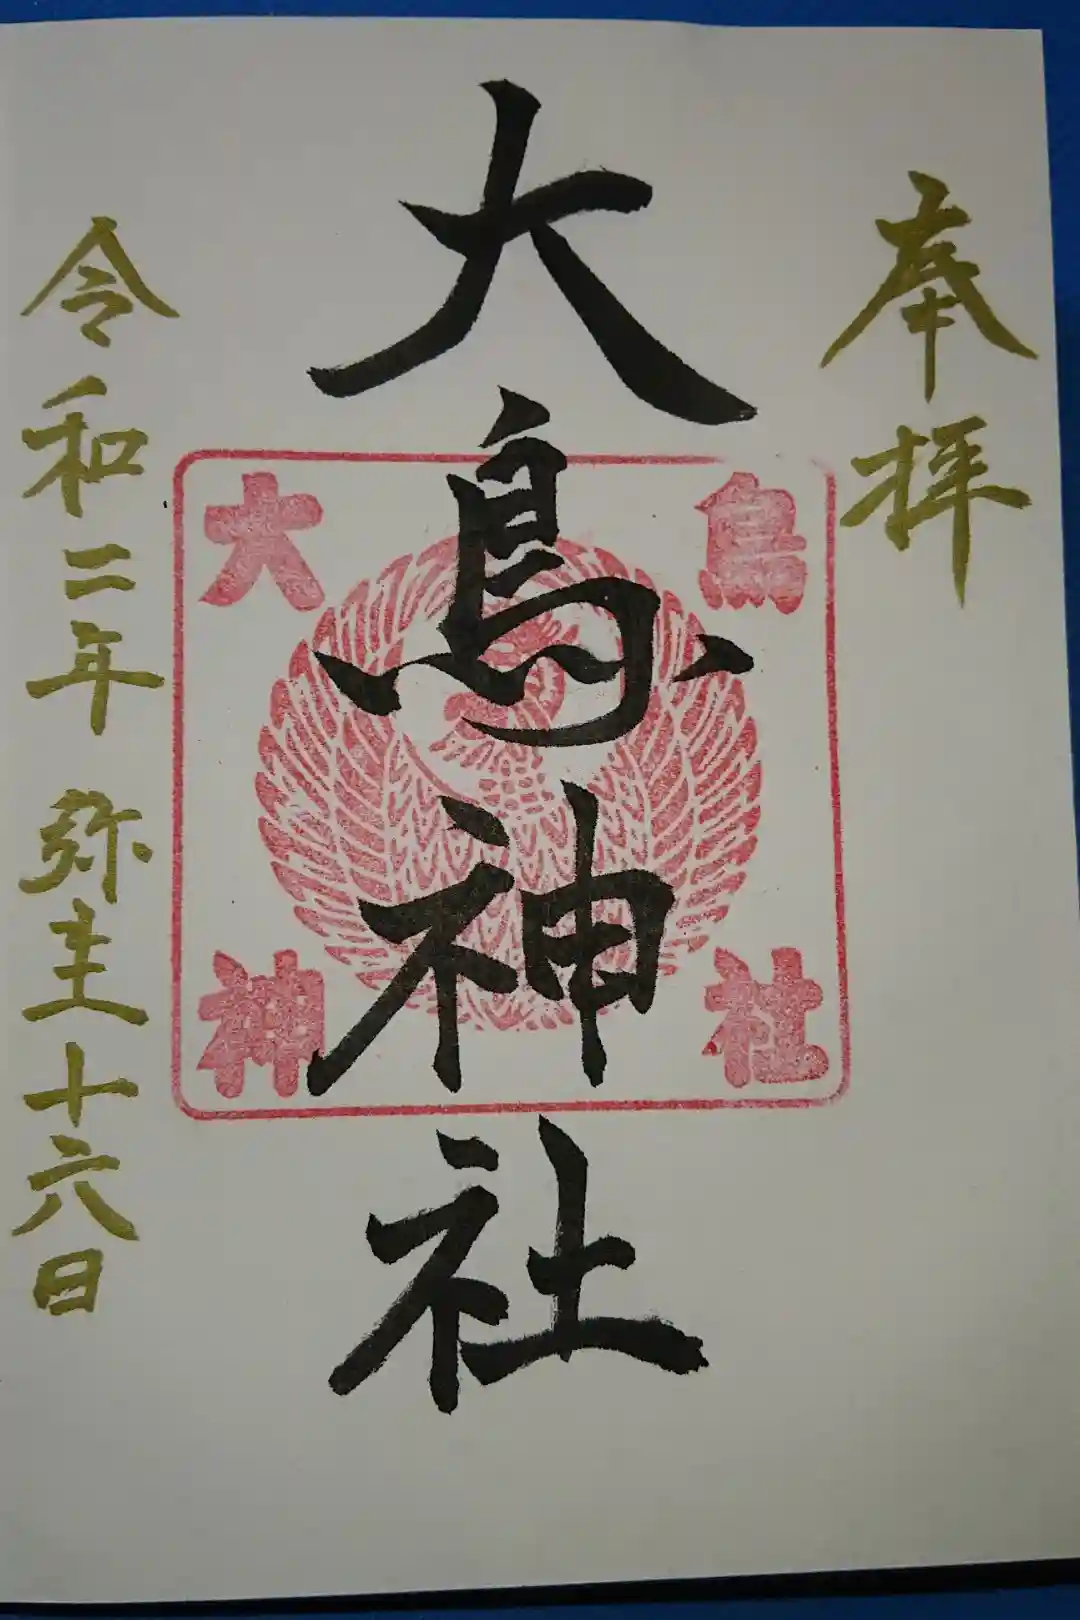 奉拝
大鳥神社
大鳥
神社
令和二年 弥生十六日